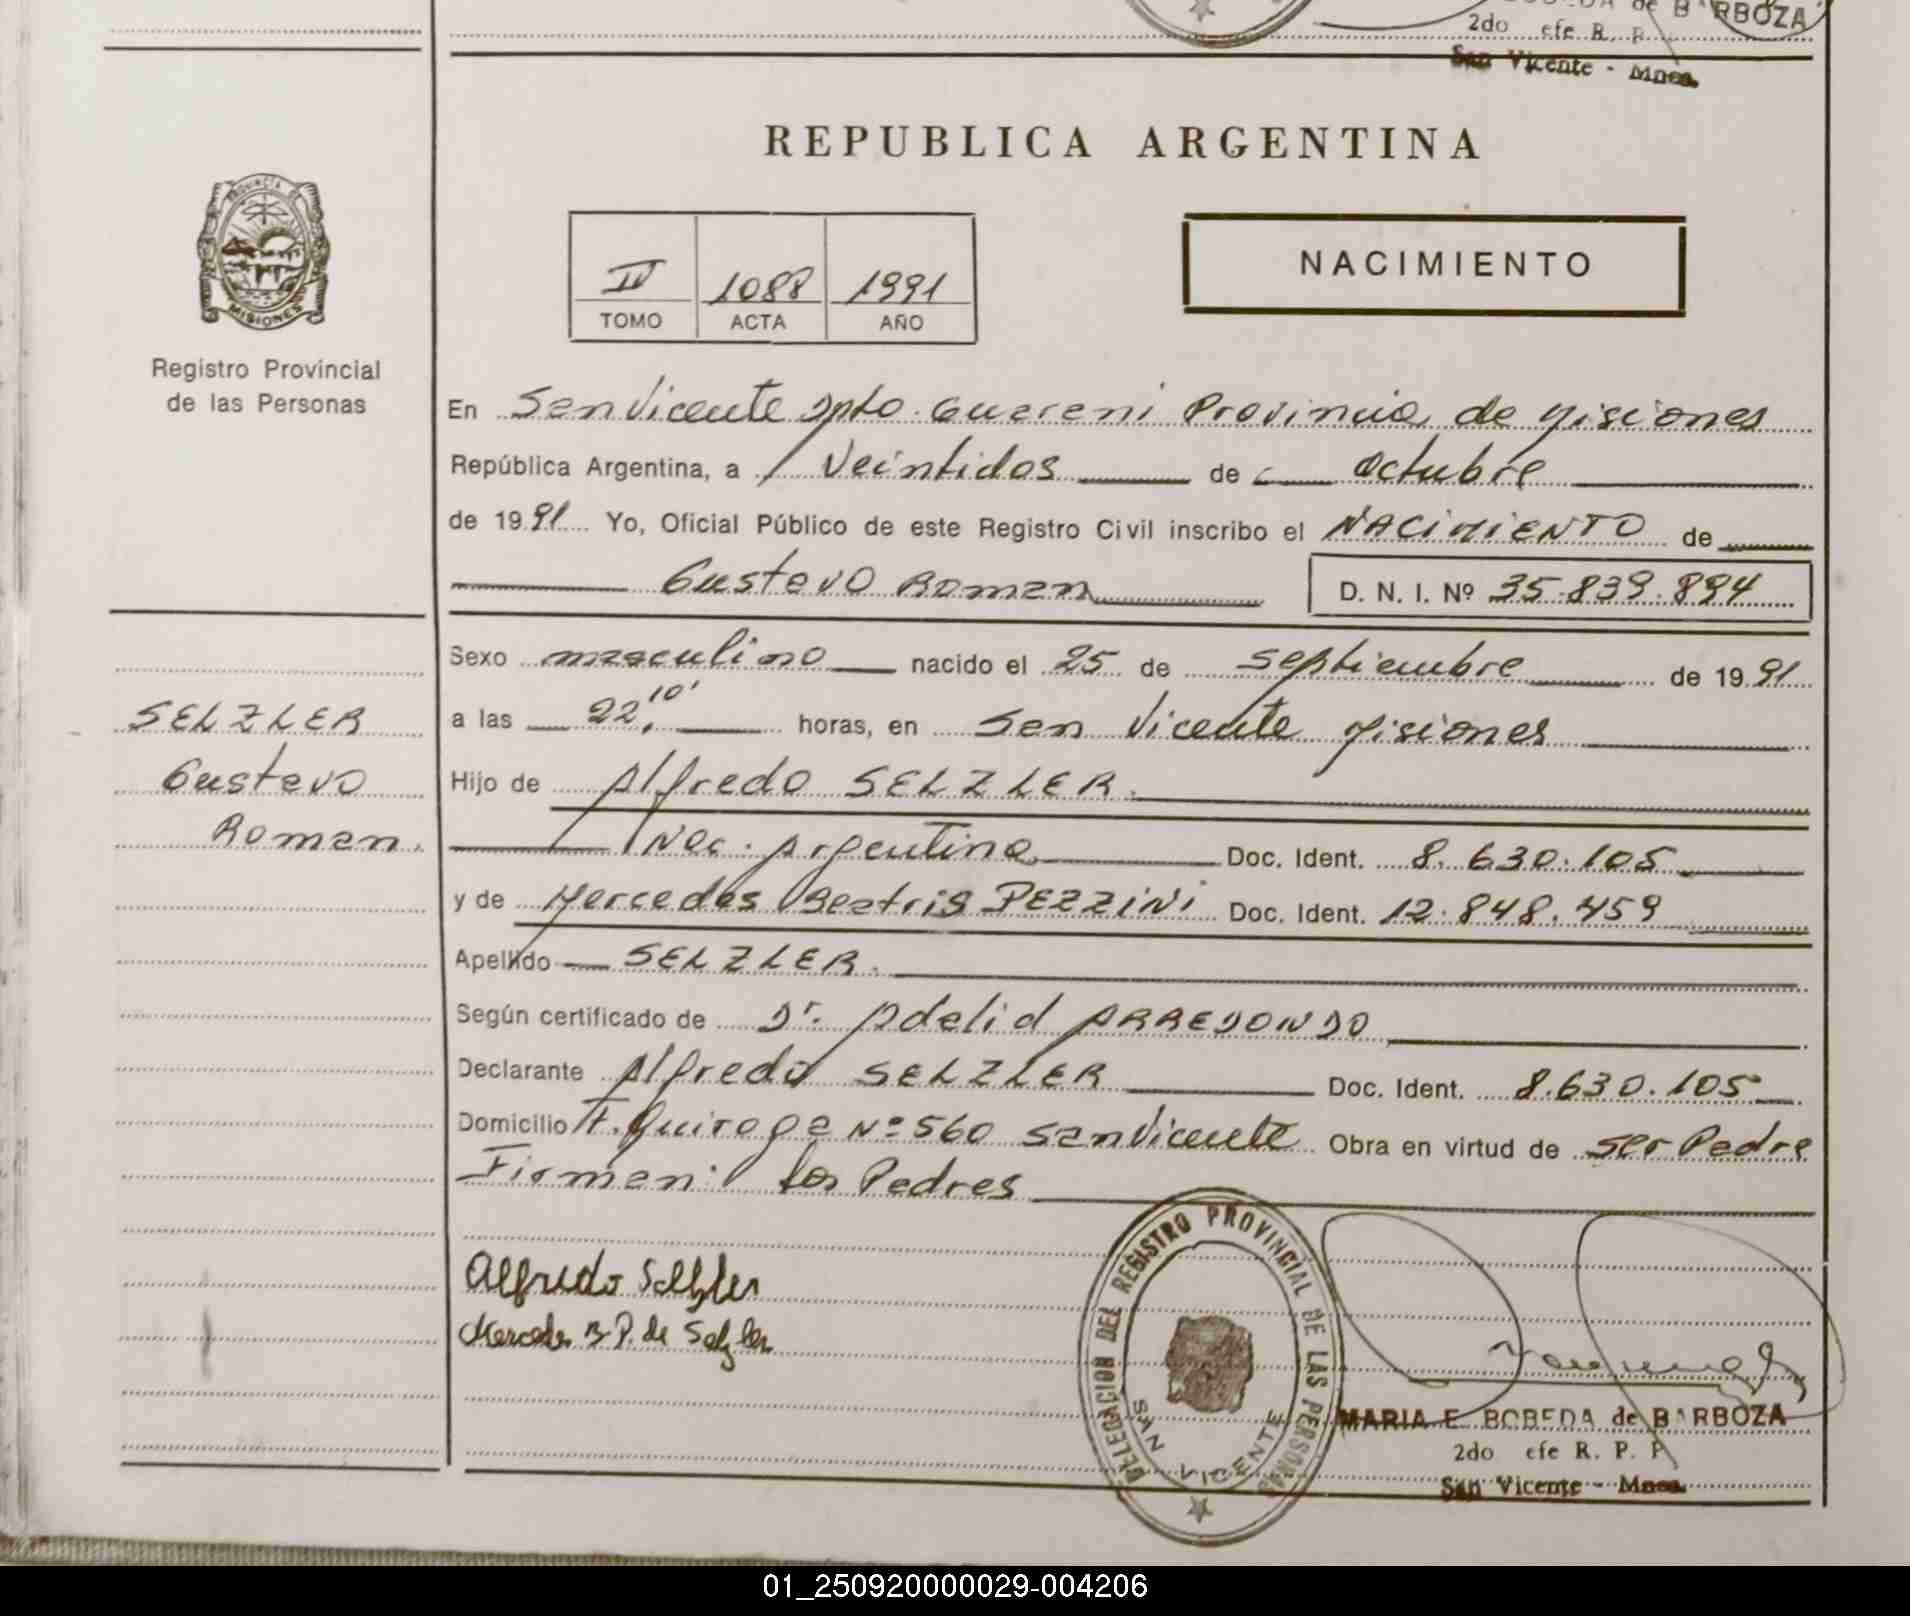 de BARBOZA
2do efe R. P.
San Vicente - Mnes.
REPUBLICA ARGENTINA
PROVINCIA DE
MISIONES
Registro Provincial
de las Personas
IV 1088 1991
TOMO ACTA AÑO
NACIMIENTO
En San Vicente Dpto. Guarani Provincia de Misiones
República Argentina, a Veintidos de Octubre
de 1991 Yo, Oficial Público de este Registro Civil inscribo el NACIMIENTO de
Gustavo Roman D. N. I. Nº 35.839.894
Sexo masculino nacido el 25 de Septiembre de 1991
SELZLER
Gustavo
Roman.
a las 22,10' horas, en San Vicente Misiones
Hijo de Alfredo SELZLER.
Nac. Argentina Doc. Ident. 8.630.105
y de Mercedes Beatris PEZZINI Doc. Ident. 12.848.459
Apellido SELZLER.
Según certificado de Dr. Adelid ARREDONDO
Declarante Alfredo SELZLER Doc. Ident. 8.630.105
Domicilio F. Quiroga Nº 560 San Vicente Obra en virtud de ser Padre
Firman: los Padres
Alfredo Selzler
Mercedes B P. de Selzler
DELEGACION DEL REGISTRO PROVINCIAL DE LAS PERSONAS
SAN VICENTE
MARIA E. BOBEDA de BARBOZA
2do efe R. P. P.
San Vicente - Mnes.
01_250920000029-004206